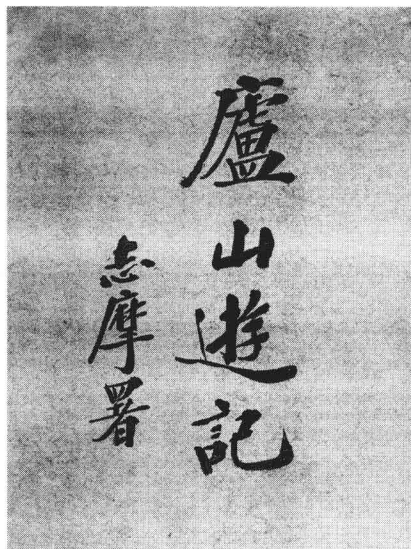 廬山遊記
志摩署